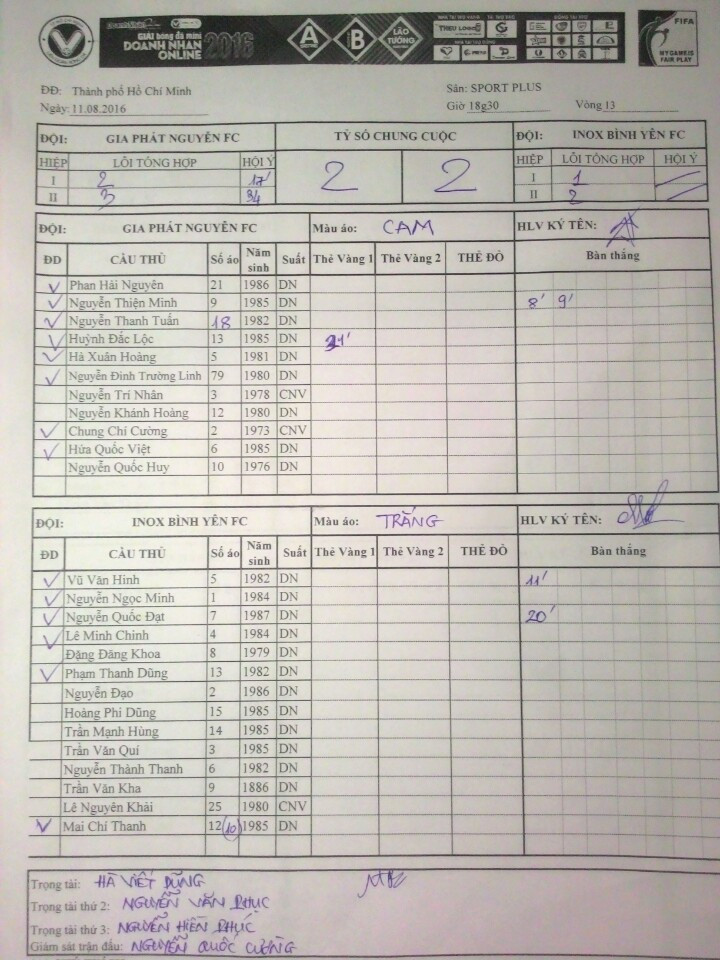 GIẢI bóng đá mini
DOANH NHÂN
ONLINE 2016
A B LÃO TƯỚNG
FIFA
MY GAME IS FAIR PLAY
ĐĐ: Thành phố Hồ Chí Minh Sân: SPORT PLUS
Ngày: 11.08.2016 Giờ 18g30 Vòng 13
ĐỘI: GIA PHÁT NGUYÊN FC TỶ SỐ CHUNG CUỘC ĐỘI: INOX BÌNH YÊN FC
HIỆP LỖI TỔNG HỢP HỘI Ý 2 2 HIỆP LỖI TỔNG HỢP HỘI Ý
I 2 17' I 1
II 3 34 II 2
ĐỘI: GIA PHÁT NGUYÊN FC Màu áo: CAM HLV KÝ TÊN:
ĐD CẦU THỦ Số áo Năm sinh Suất Thẻ Vàng 1 Thẻ Vàng 2 THẺ ĐỎ Bàn thắng
Phan Hải Nguyên 21 1986 DN
Nguyễn Thiện Minh 9 1985 DN 8' 9'
Nguyễn Thanh Tuấn 18 1982 DN
Huỳnh Đắc Lộc 13 1985 DN
Hà Xuân Hoàng 5 1981 DN
Nguyễn Đình Trường Linh 79 1980 DN
Nguyễn Trí Nhân 3 1978 CNV
Nguyễn Khánh Hoàng 12 1980 DN
Chung Chí Cường 2 1973 CNV
Hứa Quốc Việt 6 1985 DN
Nguyễn Quốc Huy 10 1976 DN
ĐỘI: INOX BÌNH YÊN FC Màu áo: TRẮNG HLV KÝ TÊN:
ĐD CẦU THỦ Số áo Năm sinh Suất Thẻ Vàng 1 Thẻ Vàng 2 THẺ ĐỎ Bàn thắng
Vũ Văn Hinh 5 1982 DN 11'
Nguyễn Ngọc Minh 1 1984 DN
Nguyễn Quốc Đạt 7 1987 DN 20'
Lê Minh Chinh 4 1984 DN
Đặng Đăng Khoa 8 1979 DN
Phạm Thanh Dũng 13 1982 DN
Nguyễn Đạo 2 1986 DN
Hoàng Phi Dũng 15 1985 DN
Trần Mạnh Hùng 14 1985 DN
Trần Văn Quí 3 1985 DN
Nguyễn Thành Thanh 6 1982 DN
Trần Văn Kha 9 1886 DN
Lê Nguyên Khải 25 1980 CNV
Mai Chí Thanh 12 (10) 1985 DN
Trọng tài: HÀ VIẾT DŨNG
Trọng tài thứ 2: NGUYỄN VĂN PHỤC
Trọng tài thứ 3: NGUYỄN HIỀN PHÚC
Giám sát trận đấu: NGUYỄN QUỐC CƯỜNG